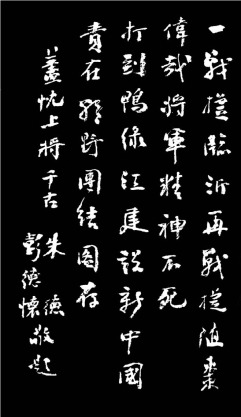 一戰捷臨沂再戰捷隨棗
偉哉將軍精神不死
打到鴨綠江建設新中國
責在朝野團結圖存
藎忱上將千古
朱德
彭德懷敬題